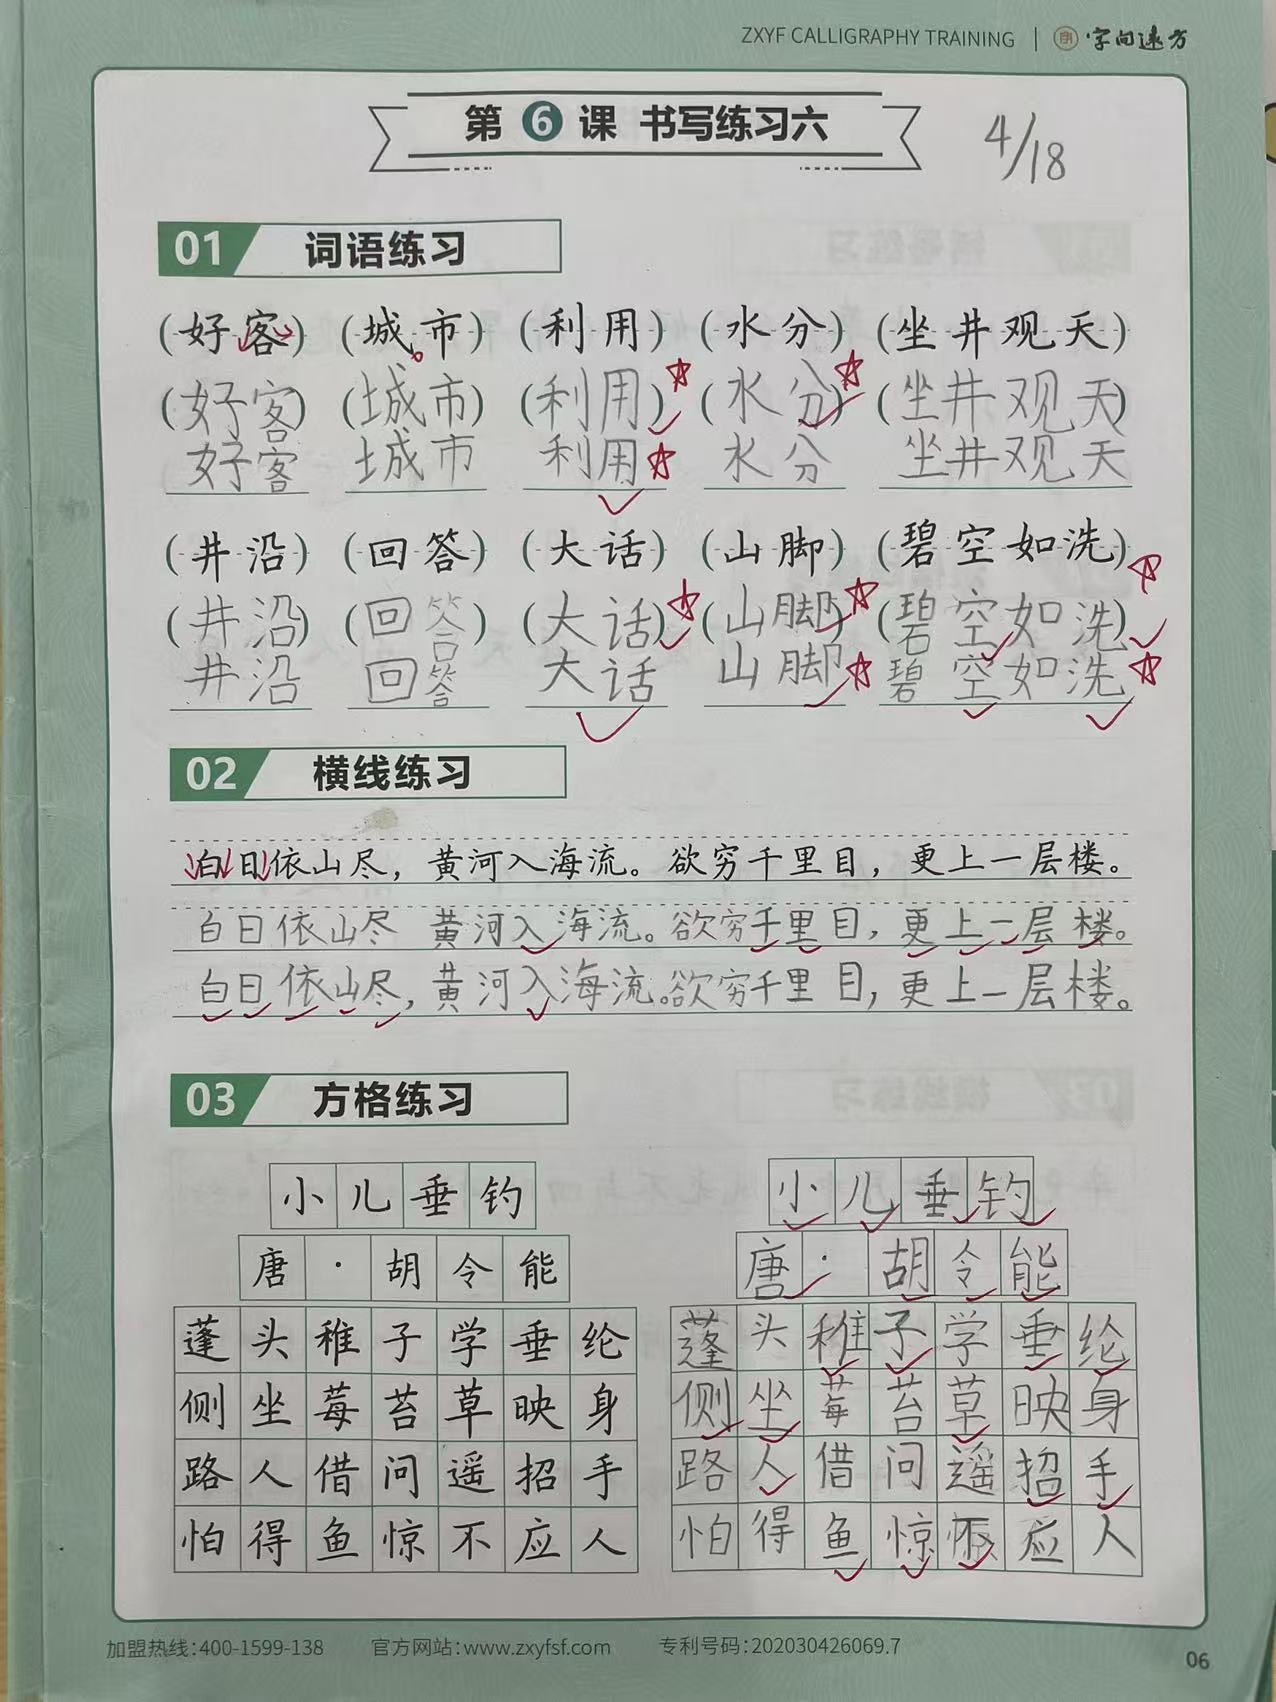 ZXYF CALLIGRAPHY TRAINING | 字向速方
第 6 课 书写练习六
4/18
01 词语练习
(好客) (城市) (利用) (水分) (坐井观天)
(好客) (城市) (利用) (水分) (坐井观天)
好客 城市 利用 水分 坐井观天
(井沿) (回答) (大话) (山脚) (碧空如洗)
(井沿) (回答) (大话) (山脚) (碧空如洗)
井沿 回答 大话 山脚 碧空如洗
02 横线练习
白日依山尽，黄河入海流。欲穷千里目，更上一层楼。
白日依山尽 黄河入海流。欲穷千里目，更上一层楼。
白日依山尽，黄河入海流。欲穷千里目，更上一层楼。
03 方格练习
小儿垂钓
唐·胡令能
蓬头稚子学垂纶
侧坐莓苔草映身
路人借问遥招手
怕得鱼惊不应人
小儿垂钓
唐·胡令能
蓬头稚子学垂纶
侧坐莓苔草映身
路人借问遥招手
怕得鱼惊不应人
加盟热线:400-1599-138 官方网站:www.zxyfsf.com 专利号码:202030426069.7
06